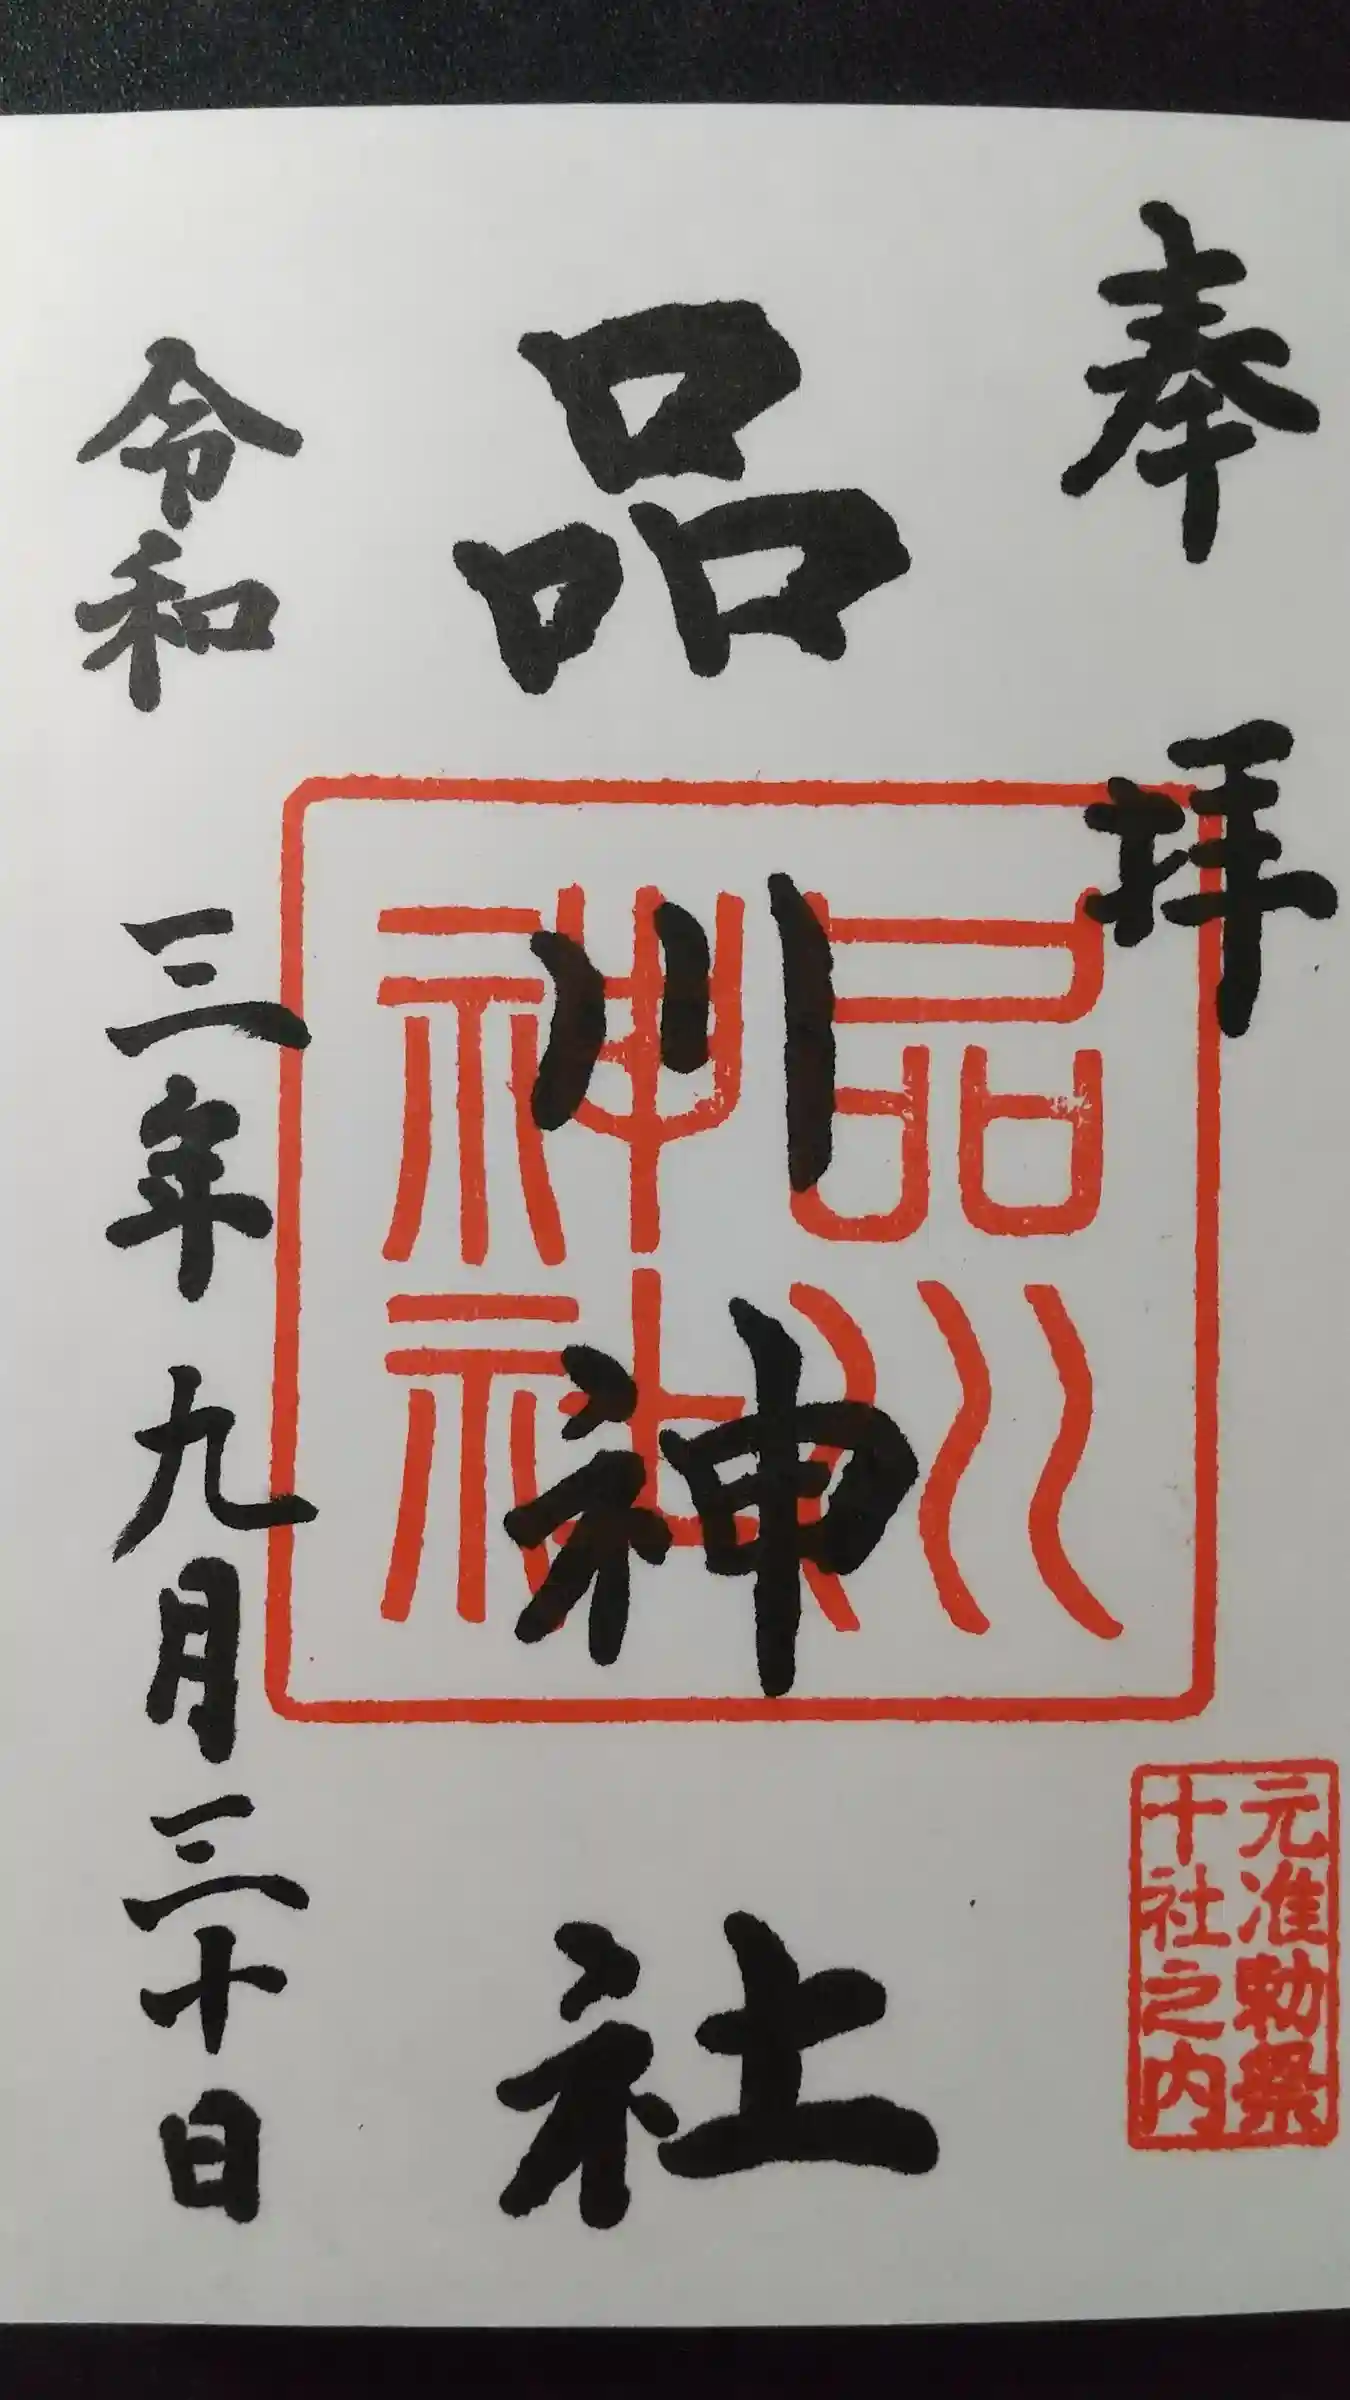 奉拝
元准勅祭
十社之内
品川神社
品川
神社
令和三年九月三十日